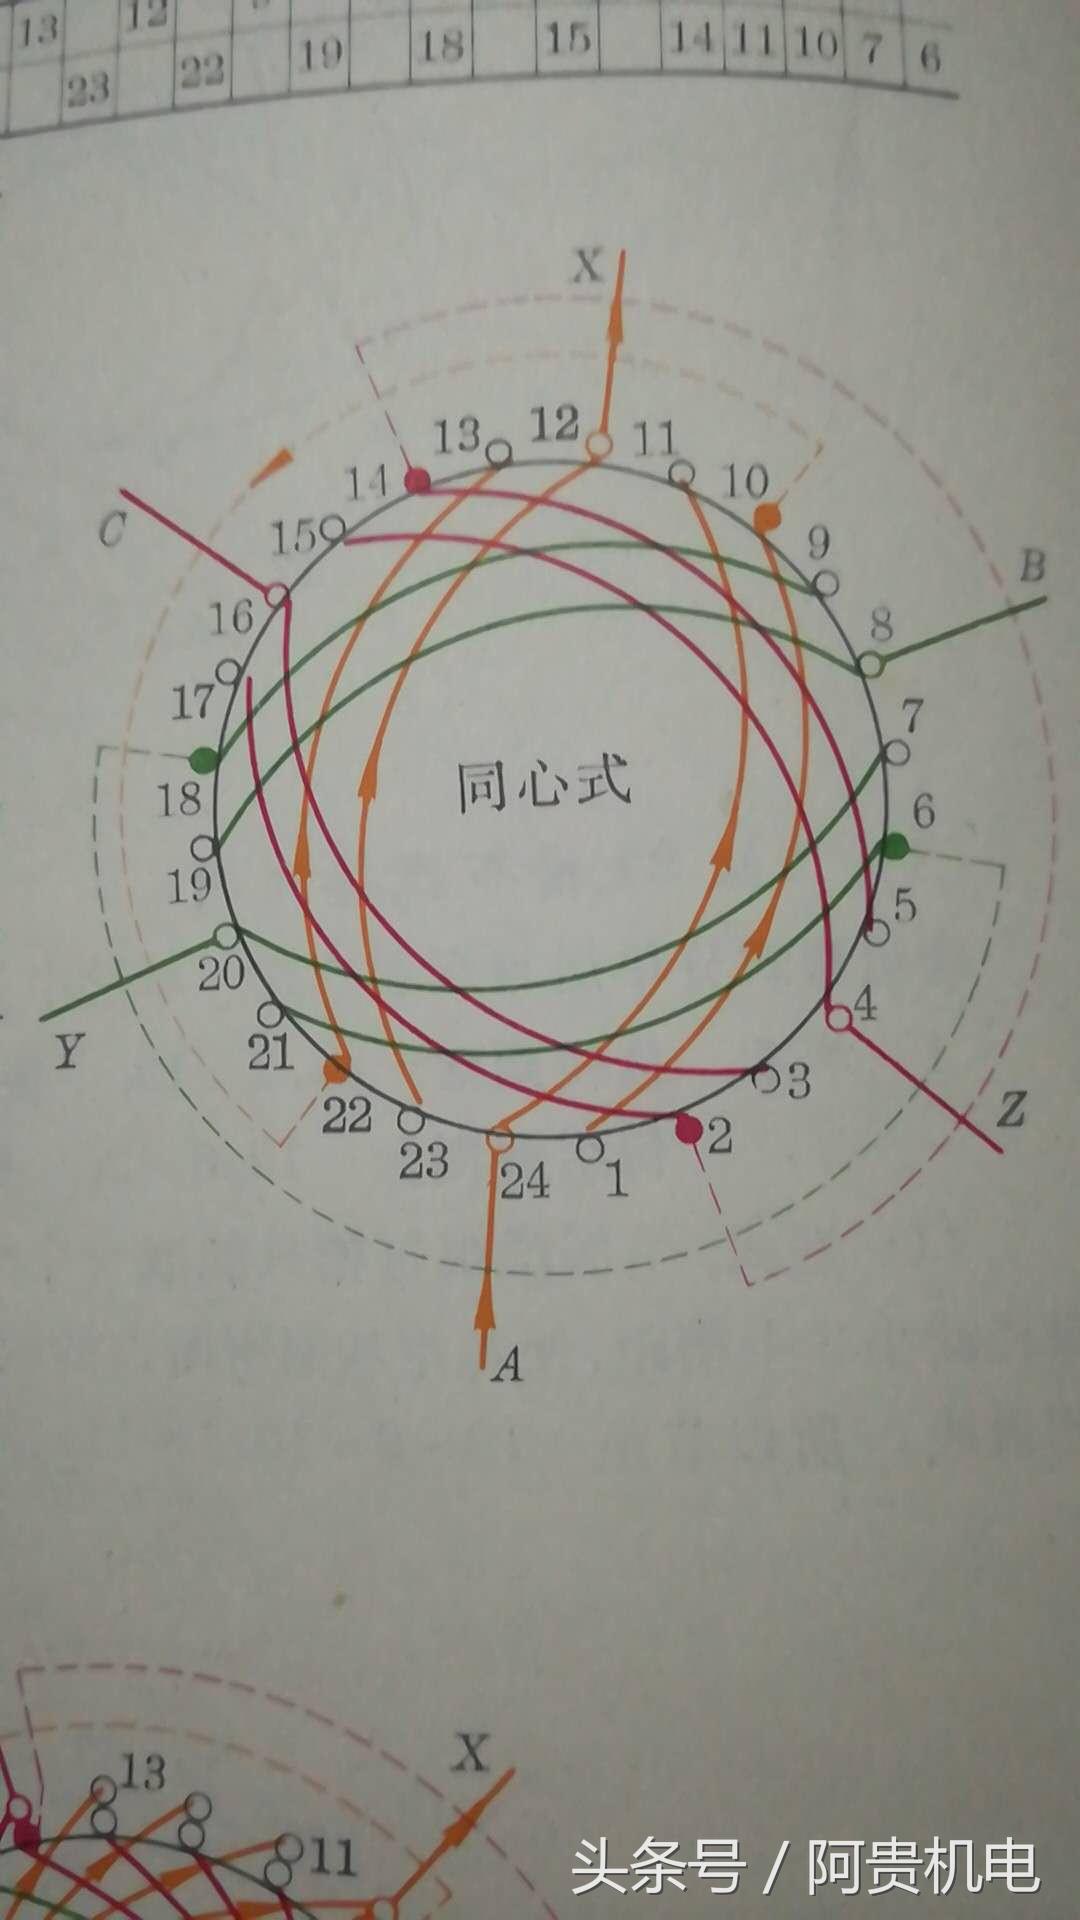 13 12
23 22 19 18 15 14 11 10 7 6
X
13 12 11
14 10
15 9
C B
16 8
17 7
同心式
18 6
19 5
20 4
Y 21 3 Z
22 2
23 24 1
A
X
13
11
头条号 / 阿贵机电